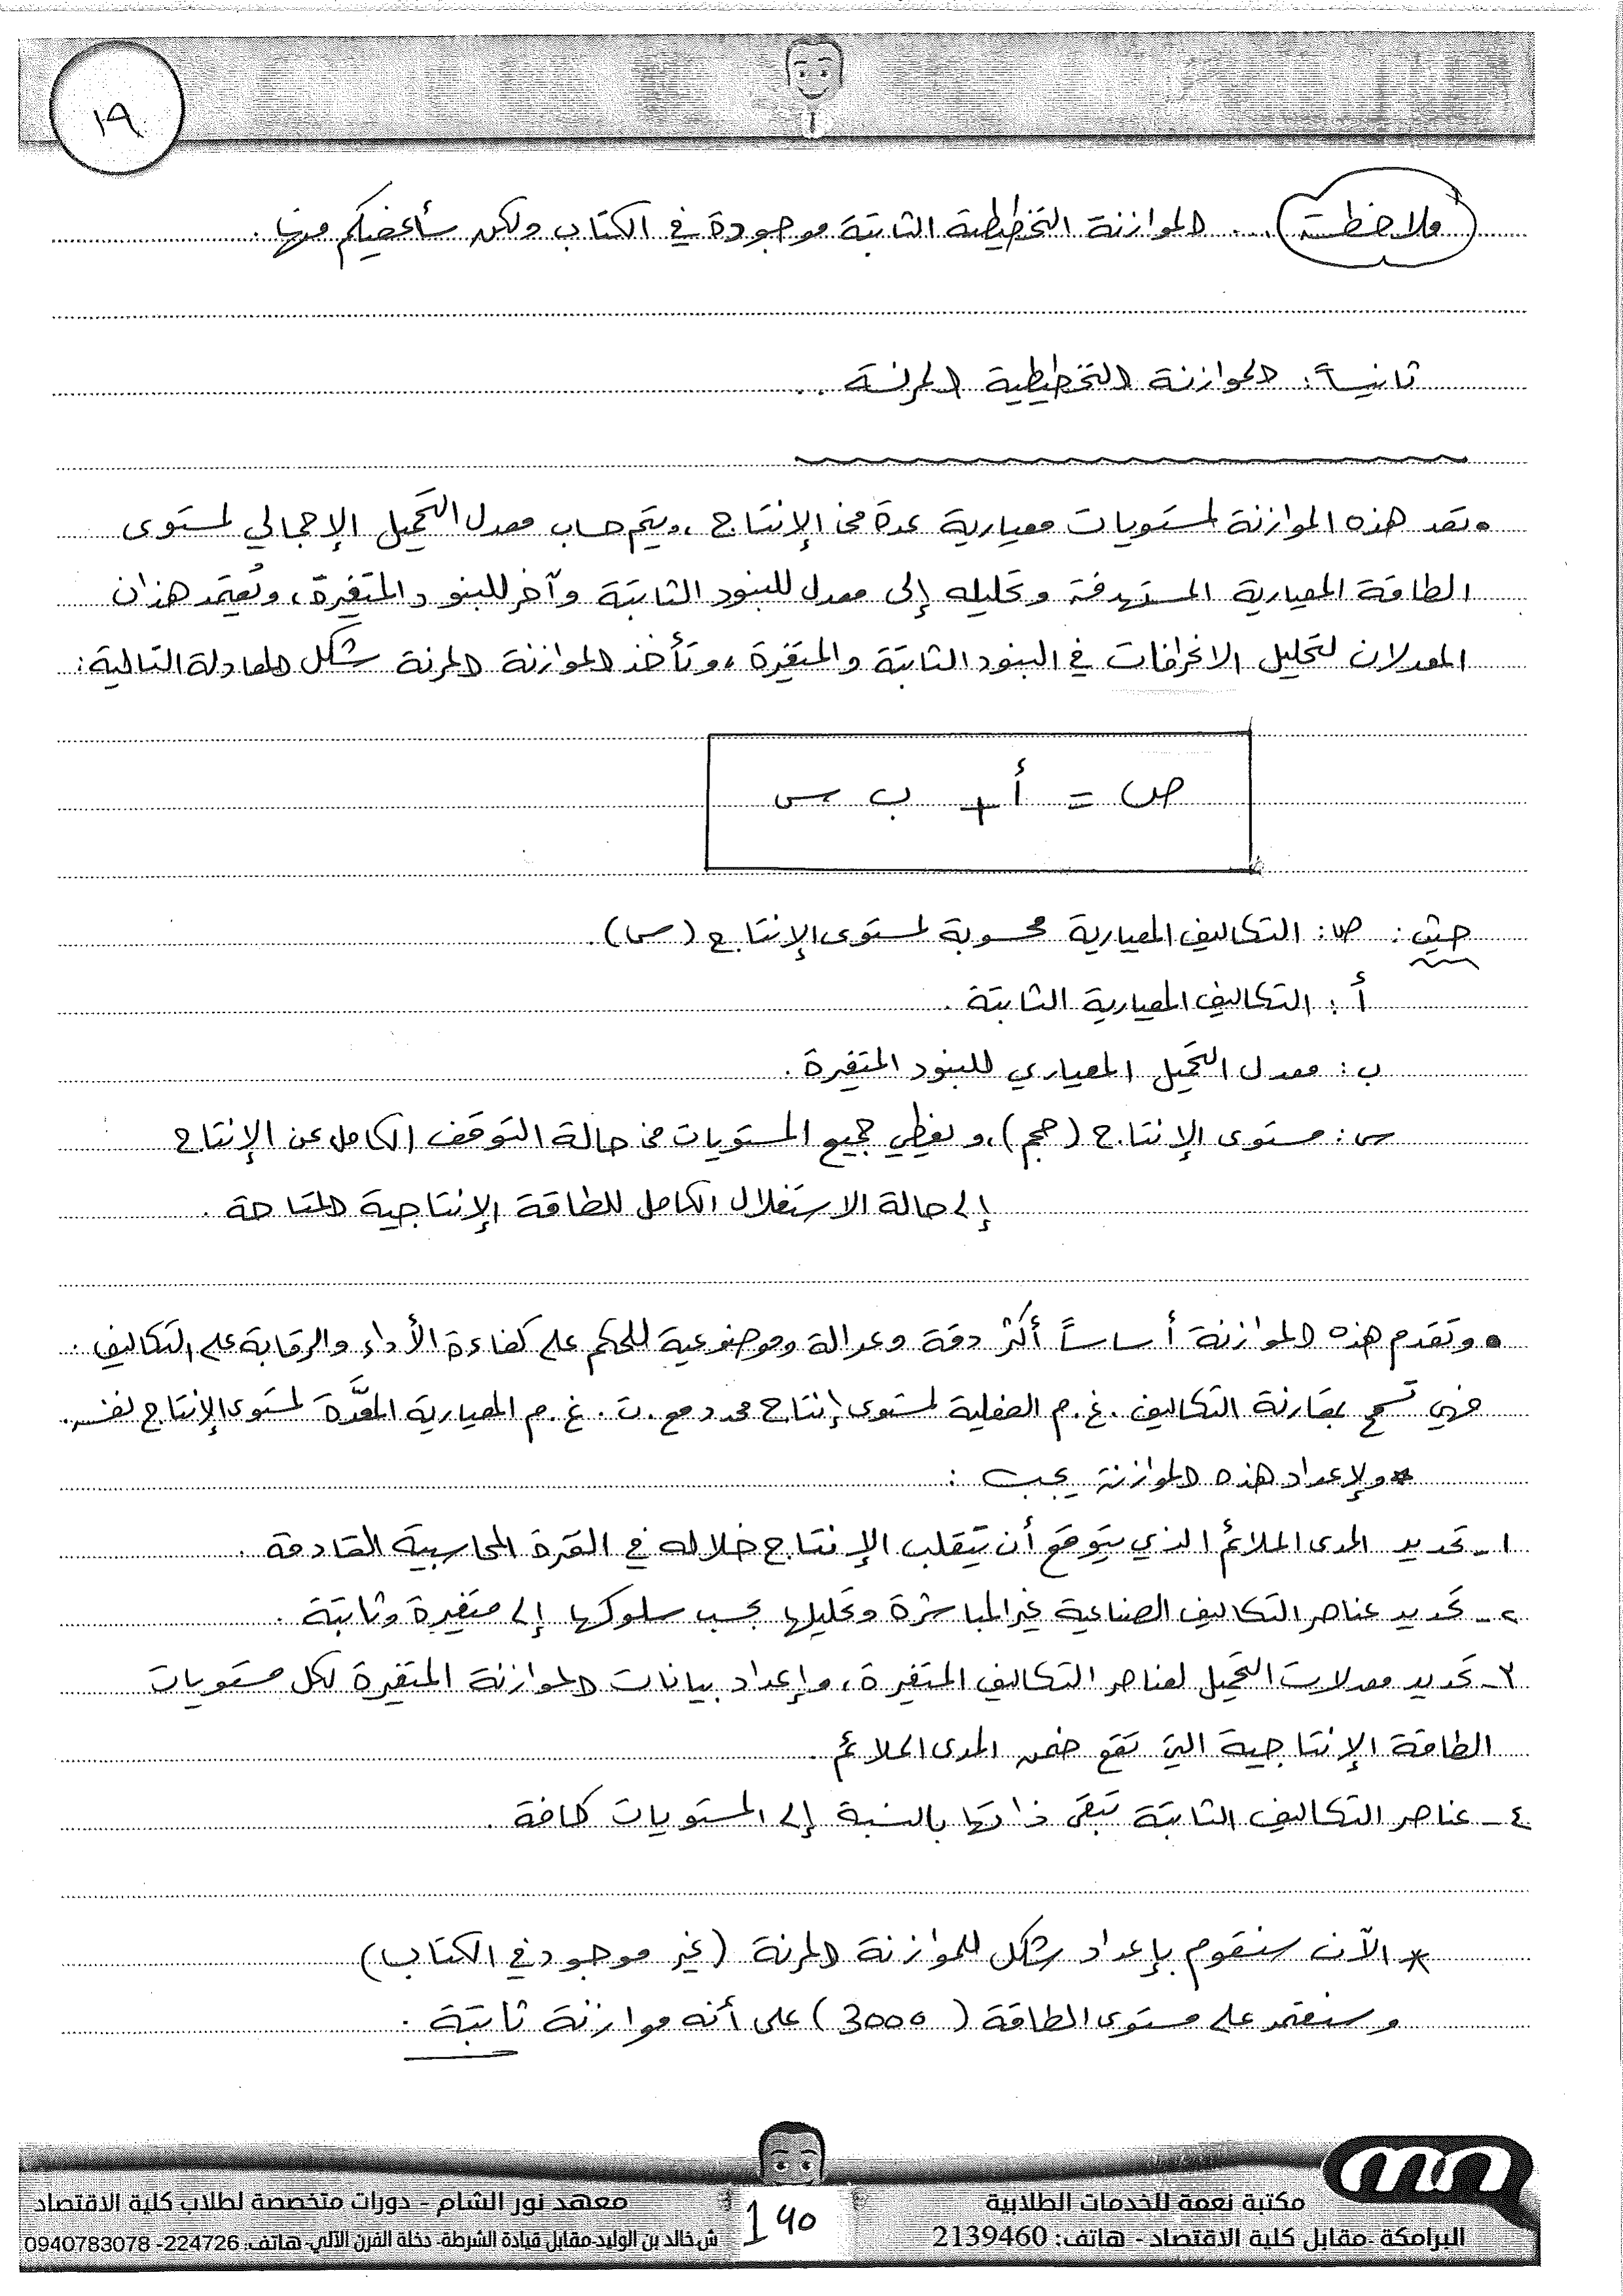 ١٩
ملاحظة ... الموازنة التخطيطية الثابتة موجودة في الكتاب ولكن سأعفيكم منها .
ثانياً : الموازنة التخطيطية المرنة ..
• تعد هذه الموازنة لمستويات معيارية عدة من الإنتاج ، ويتم حساب معدل التحميل الإجمالي لمستوى
الطاقة المعيارية المستهدفة وتحليله إلى معدل للبنود الثابتة وآخر للبنود المتغيرة ، ويُعتمد هذان
المعدلان لتحليل الانحرافات في البنود الثابتة والمتغيرة ، وتأخذ الموازنة المرنة شكل المعادلة التالية :
ص = أ + ب س
حيث : ص : التكاليف المعيارية محسوبة لمستوى الإنتاج (س) .
أ : التكاليف المعيارية الثابتة .
ب : معدل التحميل المعياري للبنود المتغيرة .
س : مستوى الإنتاج (حجم) ، ويغطي جميع المستويات من حالة التوقف الكامل عن الإنتاج
إلى حالة الاستغلال الكامل للطاقة الإنتاجية المتاحة .
• وتقدم هذه الموازنة أساساً أكثر دقة وعدالة وموضوعية للحكم على كفاءة الأداء والرقابة على التكاليف .
فهي تسمح بمقارنة التكاليف . غ . م الفعلية لمستوى إنتاج محدد مع . ت . غ . م المعيارية المعدَّة لمستوى الإنتاج نفسه .
* ولإعداد هذه الموازنة يجب :
١ - تحديد المدى الملائم الذي يتوقع أن يتقلب الإنتاج خلاله في الفترة المحاسبية القادمة .
٢ - تحديد عناصر التكاليف الصناعية غير المباشرة وتحليلها بحسب سلوكها إلى متغيرة وثابتة .
٣ - تحديد معدلات التحميل لعناصر التكاليف المتغيرة ، وإعداد بيانات الموازنة المتغيرة لكل مستويات
الطاقة الإنتاجية التي تقع ضمن المدى الملائم .
٤ - عناصر التكاليف الثابتة تبقى ذاتها بالنسبة إلى المستويات كافة .
* الآن سنقوم بإعداد شكل للموازنة المرنة (غير موجود في الكتاب)
وسنعتمد على مستوى الطاقة (3000) على أنه موازنة ثابتة .
مكتبة نعمة للخدمات الطلابية
البرامكة - مقابل كلية الاقتصاد - هاتف: 2139460
معهد نور الشام - دورات متخصصة لطلاب كلية الاقتصاد
ش.خالد بن الوليد-مقابل قيادة الشرطة- دخلة الفرن الآلي-هاتف: 224726- 0940783078